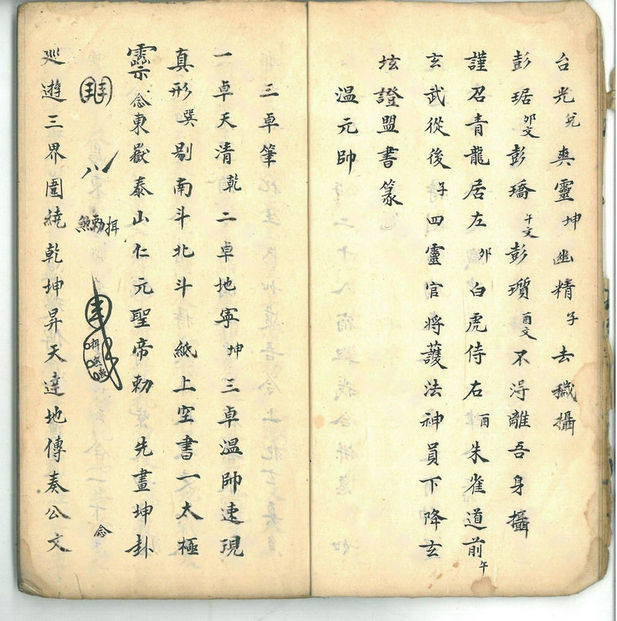 台光兌奭靈坤幽精子去穢攝
彭琚卯文彭璚午文彭瓆酉文不淂離吾身攝
謹召青龍居左卯白虎侍右酉朱雀道前午
玄武從後子四靈官將䕶法神員下降玄
垓證盟書篆
溫元帥
三卓筆
一卓天清乾二卓地寧坤三卓溫帥速現
真形巽別南斗北斗紙上空書一太極
靈念東嶽泰山仁元聖帝勅先畫坤卦
八
巡遊三界圍繞乾坤昇天達地傳奏公文
念